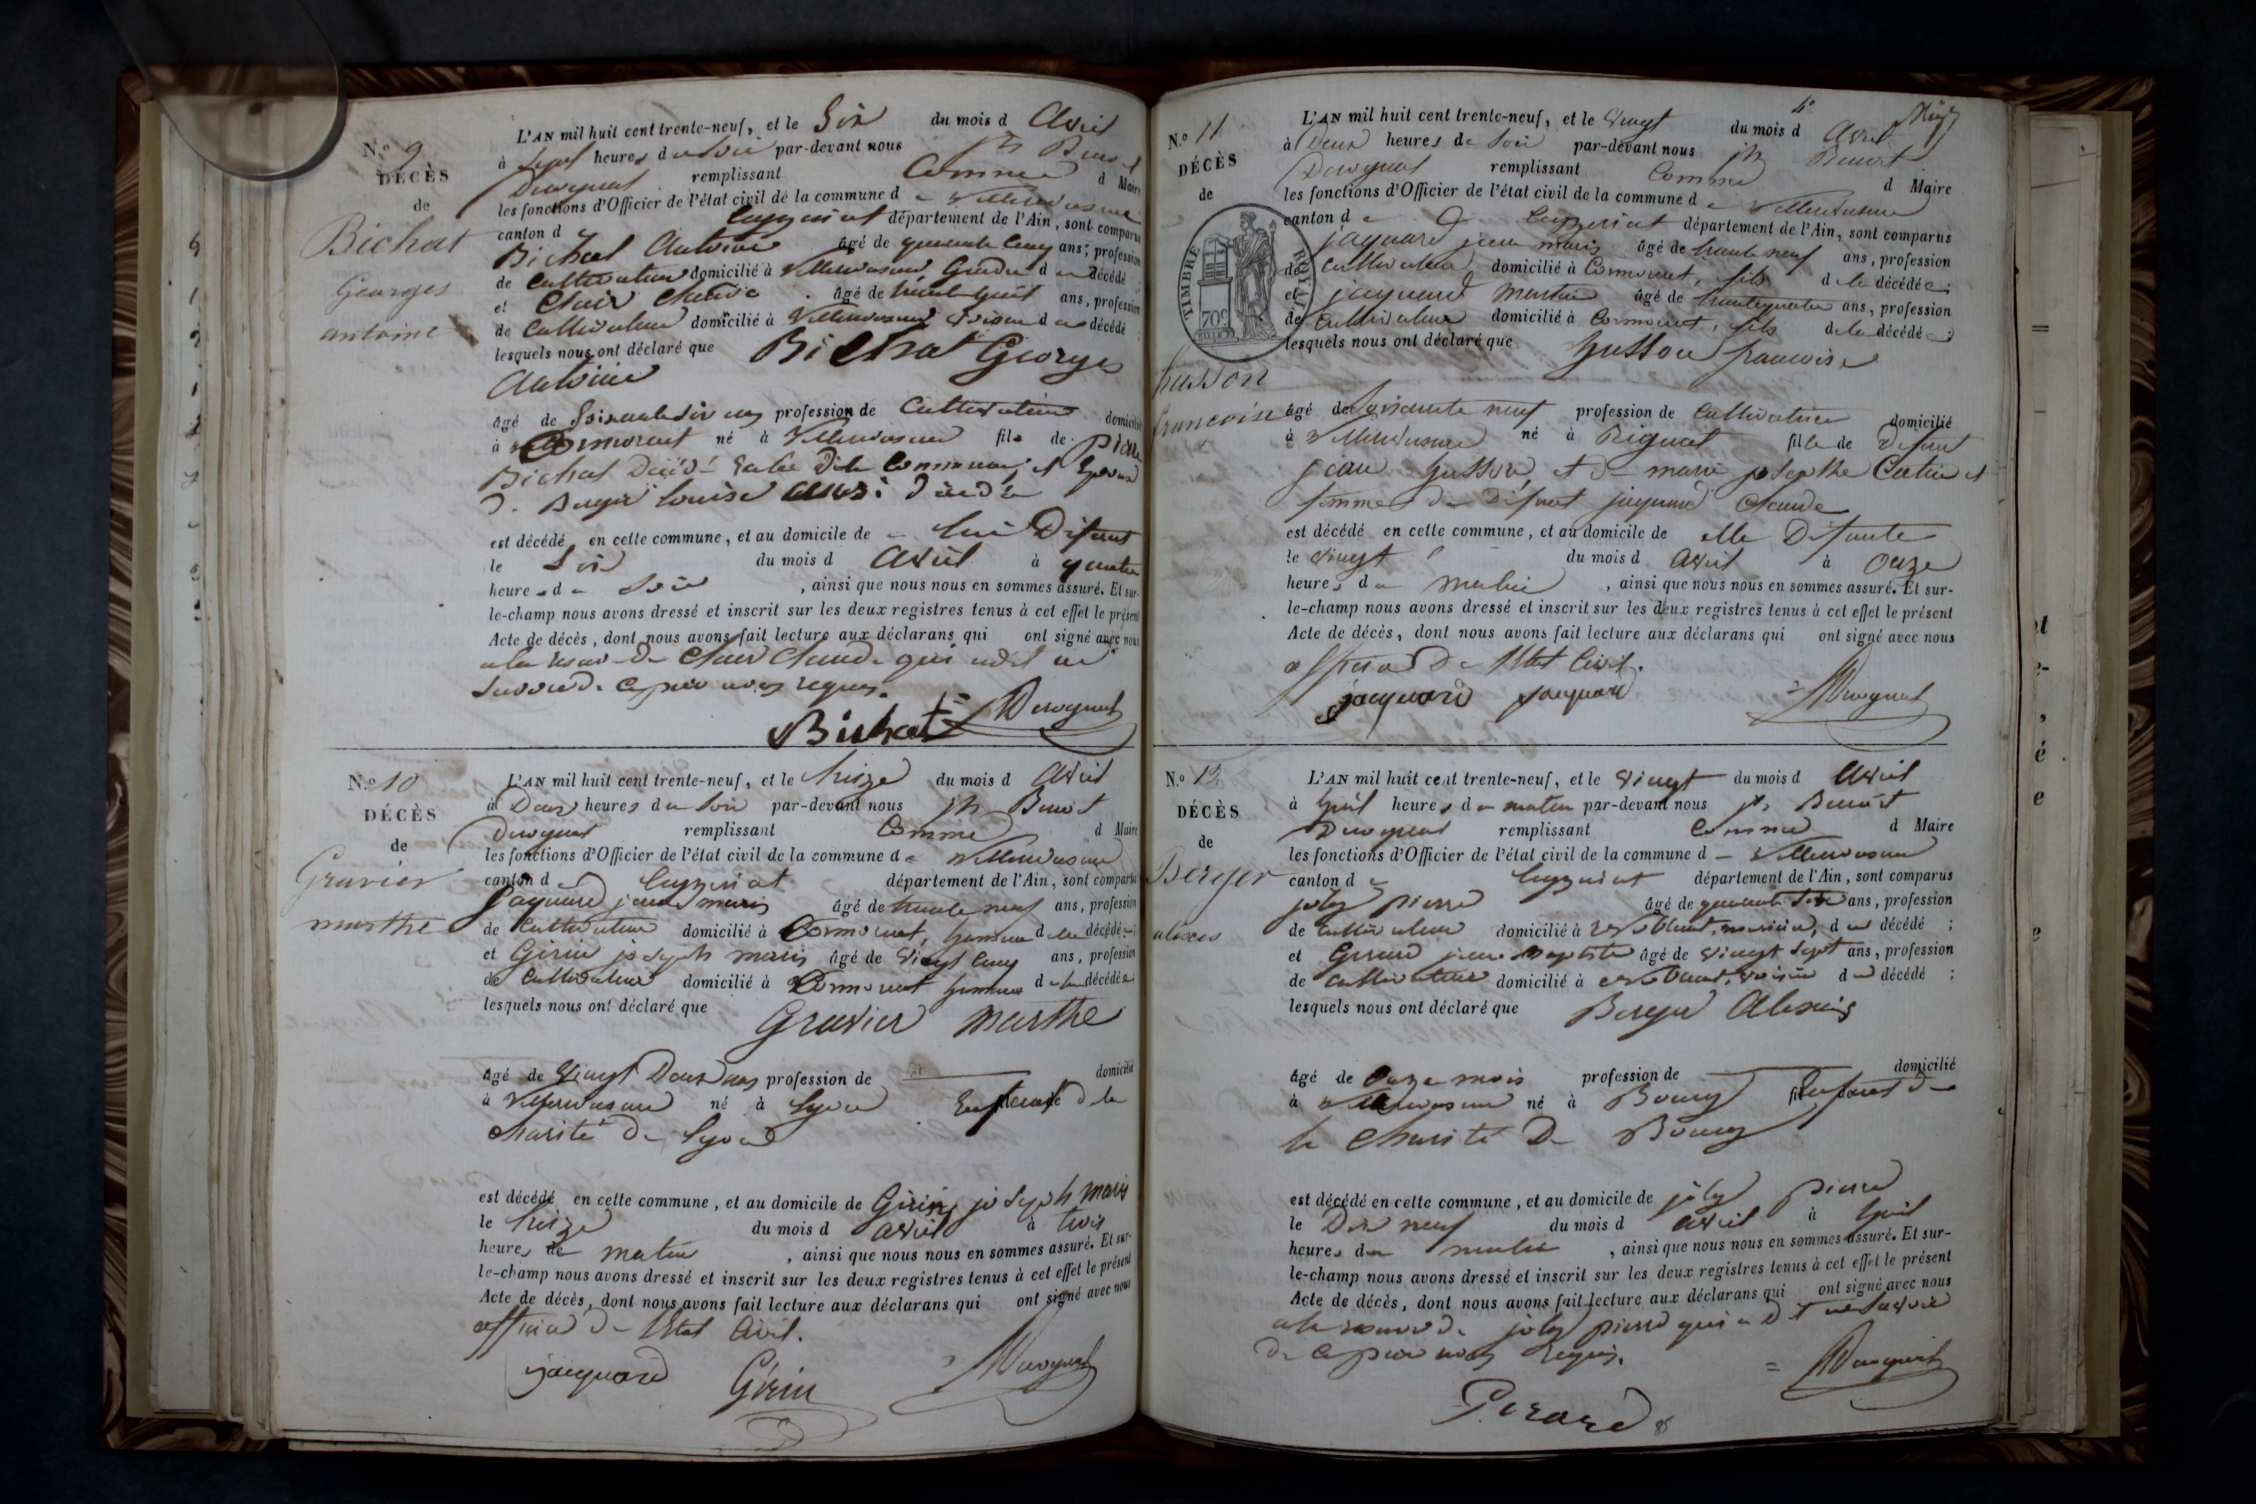 N.º 9
DÉCÈS
de
Bichat
Georges
antoine
L'AN mil huit cent trente-neuf, et le Six du mois d Avril
à Sept heures du soir par-devant nous Jh Benoit
Duroquat remplissant Comme d Maire
les fonctions d'Officier de l'état civil de la commune d e Villereversure
canton d Ceyzeriat département de l'Ain, sont comparus
Bichat Antoine âgé de quarante Cinq ans, profession
de Cultivateur domicilié à Villereversure, Gendre d u décédé
et Claude âgé de trente huit ans, profession
de Cultivateur domicilié à Villereversure voisin d u décédé
lesquels nous ont déclaré que Bichat Georges
Antoine
âgé de Soixante Six ans profession de Cultivateur domicilié
à Cormorent né à Villereversure fils de
Bichat Décédé en la dite Commune, et Epoux
D. Berger Louise aussi décédée
est décédé en cette commune, et au domicile de lui Défunt
le Six du mois d Avril à quatre
heures du Soir, ainsi que nous nous en sommes assuré. Et sur-
le-champ nous avons dressé et inscrit sur les deux registres tenus à cet effet le présent
Acte de décès, dont nous avons fait lecture aux déclarans qui ont signé avec nous
a la reserve de Claude qui a dit ne
Savoir de ce par nous requis.
Bichat
N.º 10
DÉCÈS
de
Gravier
marthe
L'AN mil huit cent trente-neuf, et le treize du mois d Avril
à Deux heures du soir par-devant nous Jh Benoit
Duroquat remplissant Comme d Maire
les fonctions d'Officier de l'état civil de la commune d e Villereversure
canton d e Ceyzeriat département de l'Ain, sont comparus
Jaquard jean marie âgé de trente neuf ans, profession
de Cultivateur domicilié à Cormorent, d e la décédée
et Girin joseph marie âgé de vingt Cinq ans, profession
de Cultivateur domicilié à Cormorent d e la décédée
lesquels nous ont déclaré que Gravier Marthe
âgé de vingt Deux ans profession de domicilié
à Villereversure né à Lyon Enfant de la
Charité de Lyon
est décédé en cette commune, et au domicile de Girin joseph marie
le treize du mois d avril à trois
heures de matin, ainsi que nous nous en sommes assuré. Et sur-
le-champ nous avons dressé et inscrit sur les deux registres tenus à cet effet le présent
Acte de décès, dont nous avons fait lecture aux déclarans qui ont signé avec nous
officier de l'Etat Civil.
jacquard Girin
N.º 11
DÉCÈS
de
TIMBRE ROYAL
70c
husson
francoise
L'AN mil huit cent trente-neuf, et le vingt du mois d Avril
à Deux heures de soir par-devant nous Jh Benoit
Duroquat remplissant Comme d Maire
les fonctions d'Officier de l'état civil de la commune d e Villereversure
canton d e Ceyzeriat département de l'Ain, sont comparus
jaquard jean marie âgé de trente neuf ans, profession
de Cultivateur domicilié à Cormorent, fils d e la décédée;
et jaquard Martin âgé de trente quatre ans, profession
de Cultivateur domicilié à Cormorent, fils d e la décédée;
lesquels nous ont déclaré que husson francoise
âgé de Soixante neuf profession de Cultivatrice domicilié
à Villereversure né à Rignat fille de Défunt
jean husson, et de marie josephe et
femme de défunt jaquard Claude
est décédé en cette commune, et au domicile de elle Défunte
le vingt du mois d avril à onze
heures du matin, ainsi que nous nous en sommes assuré. Et sur-
le-champ nous avons dressé et inscrit sur les deux registres tenus à cet effet le présent
Acte de décès, dont nous avons fait lecture aux déclarans qui ont signé avec nous
officier De l'Etat Civil.
jacquard jacquard
N.º 12
DÉCÈS
de
Berger
alexis
L'AN mil huit cent trente-neuf, et le vingt du mois d Avril
à huit heures du matin par-devant nous Jh Benoit
Duroquat remplissant Comme d Maire
les fonctions d'Officier de l'état civil de la commune d e Villereversure
canton d e Ceyzeriat département de l'Ain, sont comparus
joly pierre âgé de quarante ans, profession
de Cultivateur domicilié à d u décédé;
et Girard jean Baptiste âgé de vingt Sept ans, profession
de Cultivateur domicilié à voisin d u décédé;
lesquels nous ont déclaré que Berger Alexis
âgé de Onze mois profession de domicilié
à Villereversure né à Bourg Enfant de
la Charité De Bourg
est décédé en cette commune, et au domicile de joly pierre
le Dix neuf du mois d avril à huit
heures du matin, ainsi que nous nous en sommes assuré. Et sur-
le-champ nous avons dressé et inscrit sur les deux registres tenus à cet effet le présent
Acte de décès, dont nous avons fait lecture aux déclarans qui ont signé avec nous
a la reserve de joly pierre qui a dit ne Savoir
de ce par nous requis.
Girard